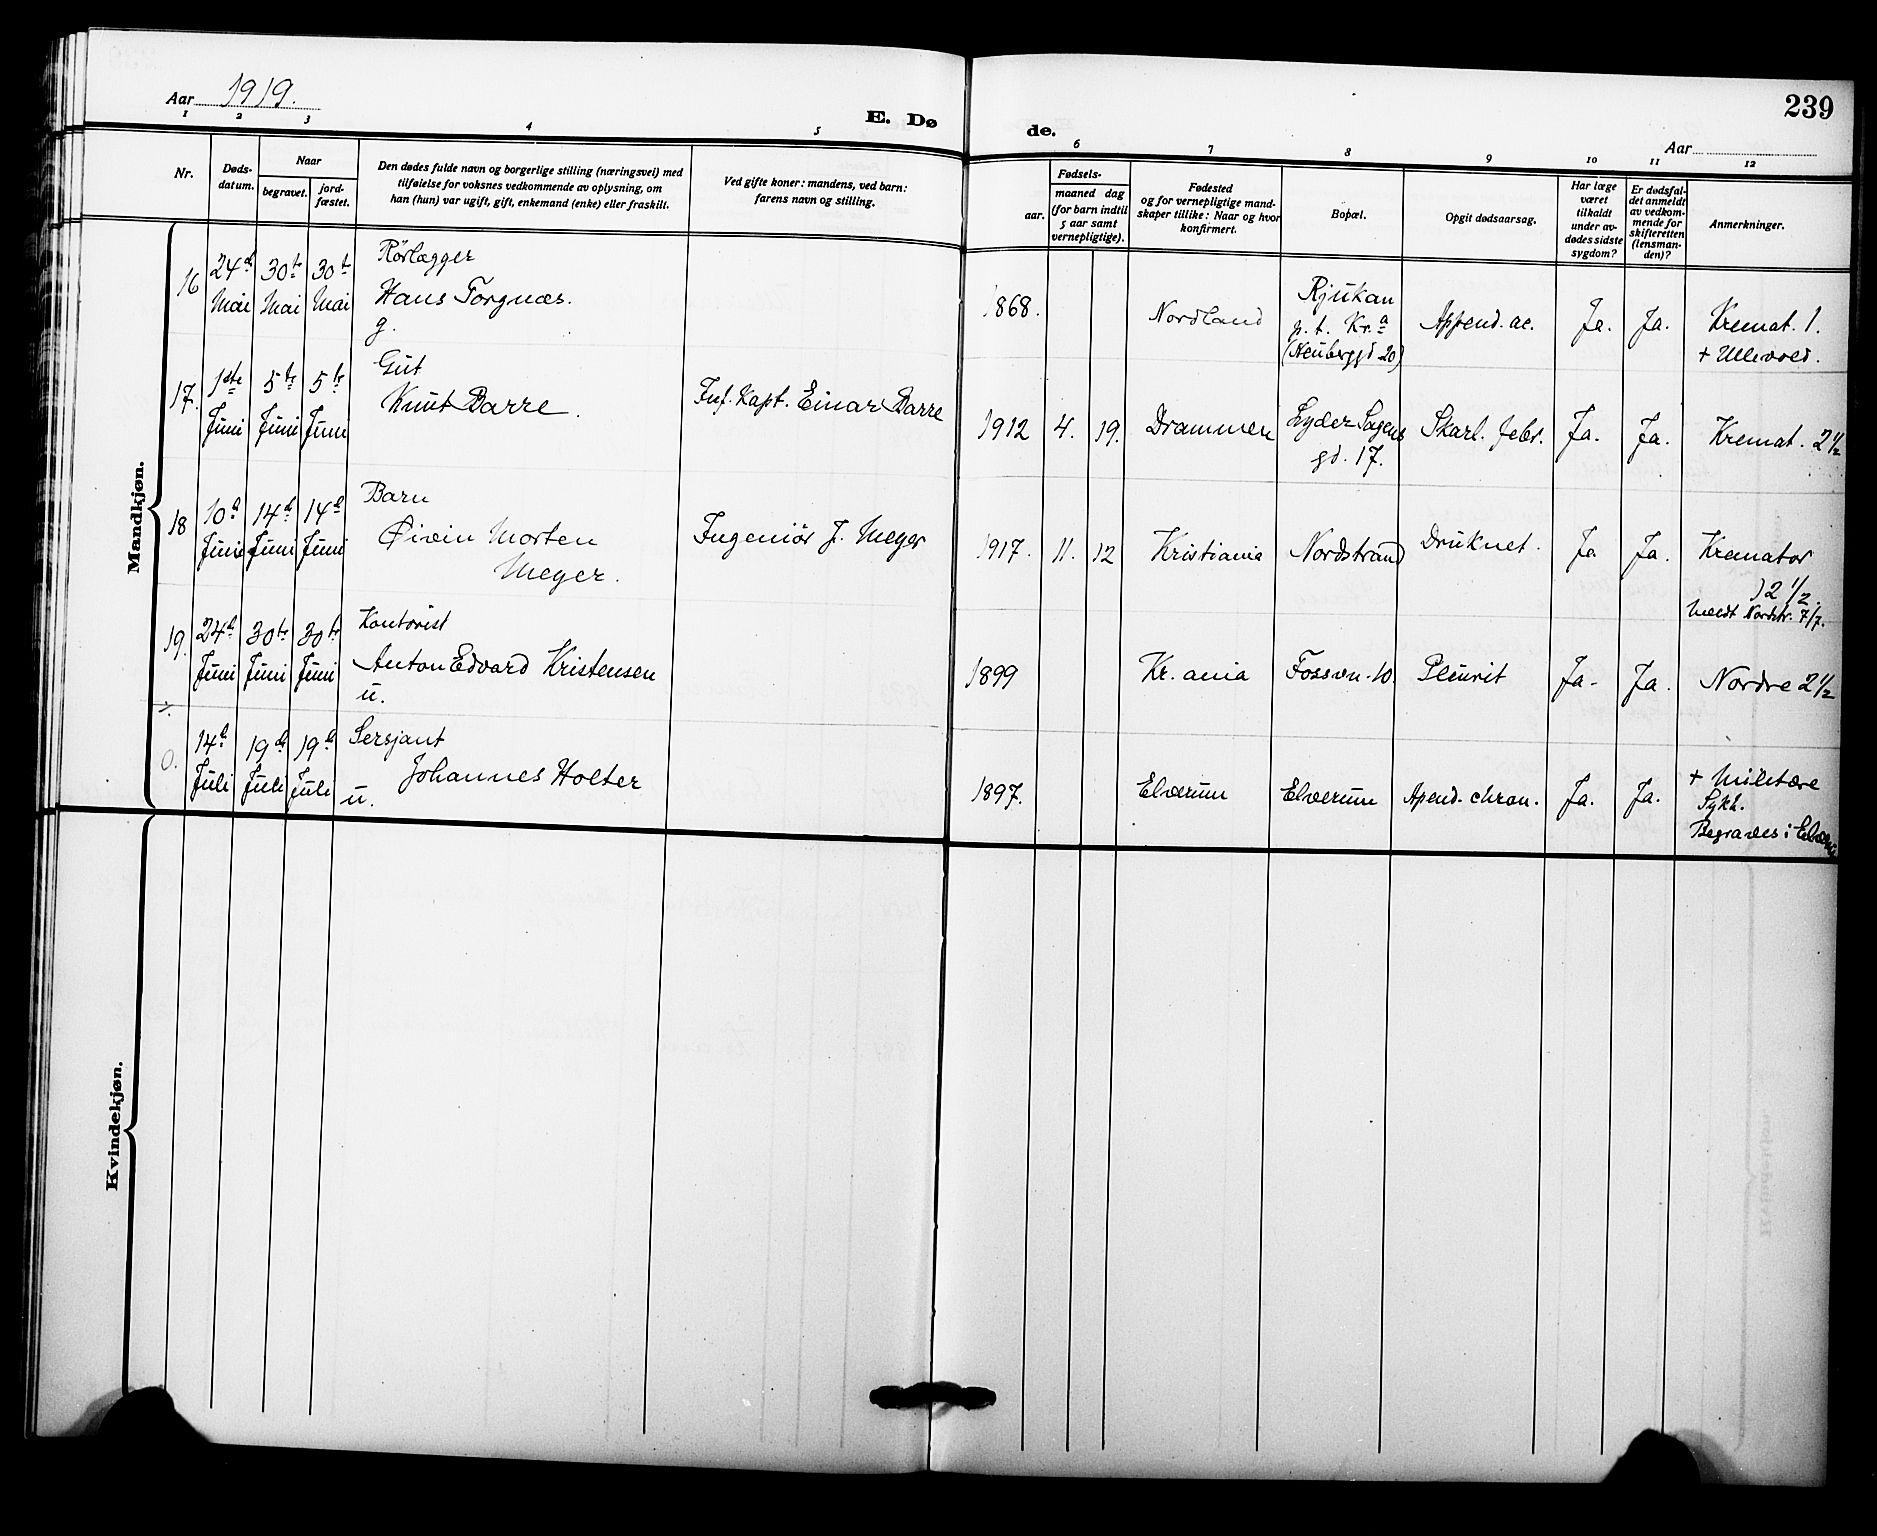 Aar 1919.
E. Dø
de.
239
Aar
1 2 3 4 5
6 7 8 9 10 11 12
Nr.
Døds-
datum.
Naar
begravet.
jord-
fæstet.
Den dødes fulde navn og borgerlige stilling (næringsvei) med
tilføielse for voksnes vedkommende av oplysning, om
han (hun) var ugift, gift, enkemand (enke) eller fraskilt.
Ved gifte koner: mandens, ved barn:
farens navn og stilling.
Fødsels-
aar.
maaned dag
(for barn indtil
5 aar samt
vernepligtige).
Fødested
og for vernepligtige mand-
skaper tillike: Naar og hvor
konfirmert.
Bopæl.
Opgit dødsaarsag.
Har læge
været
tilkaldt
under av-
dødes sidste
sygdom?
Er dødsfal-
det anmeldt
av vedkom-
mende for
skifteretten
(lensman-
den)?
Anmerkninger.
Mandkjøn.
16
24d
Mai
30te
Mai
30te
Mai
Rørlægger
Hans Torgnæs.
g.
1868.
Nordland
Rjukan
p. t. Kr.a
(Heuberggd 20)
Append. ac.
Ja.
Ja.
Kremat. 1.
+ Ullevold.
17.
1ste
Juni
5te
Juni
5te
Juni
Gut
Knut Barre.
Inf. Kapt. Einar Barre
1912
4.
19.
Drammen
Lyder Sagens
gd. 17.
Skarl. febr.
Ja.
Ja.
Kremat. 2 1/2
18
10d
Juni
14d
Juni
14d
Juni
Barn
Øivin Morten
Meyer.
Ingeniør J. Meyer
1917.
11.
12
Kristiania
Nordstrand
Druknet.
Ja
Ja.
Kremator
) 2 1/2.
Meldt Nordstr. 7/7.
19.
24d
Juni
30te
Juni
30te
Juni
Kontorist
Anton Edvard Kristensen
u.
1899
Kr.ania
Fossvn. 10.
Pleurit
Ja.
Ja.
Nordre 2 1/2
0.
14d
Juli
19d
Juli
19d
Juli
Sersjant
Johannes Holter
u.
1897.
Elverum
Elverum
Apend. chron.
Ja.
Ja.
+ Militære
Sykh.
Begraves i Elverum
Kvindekjøn.